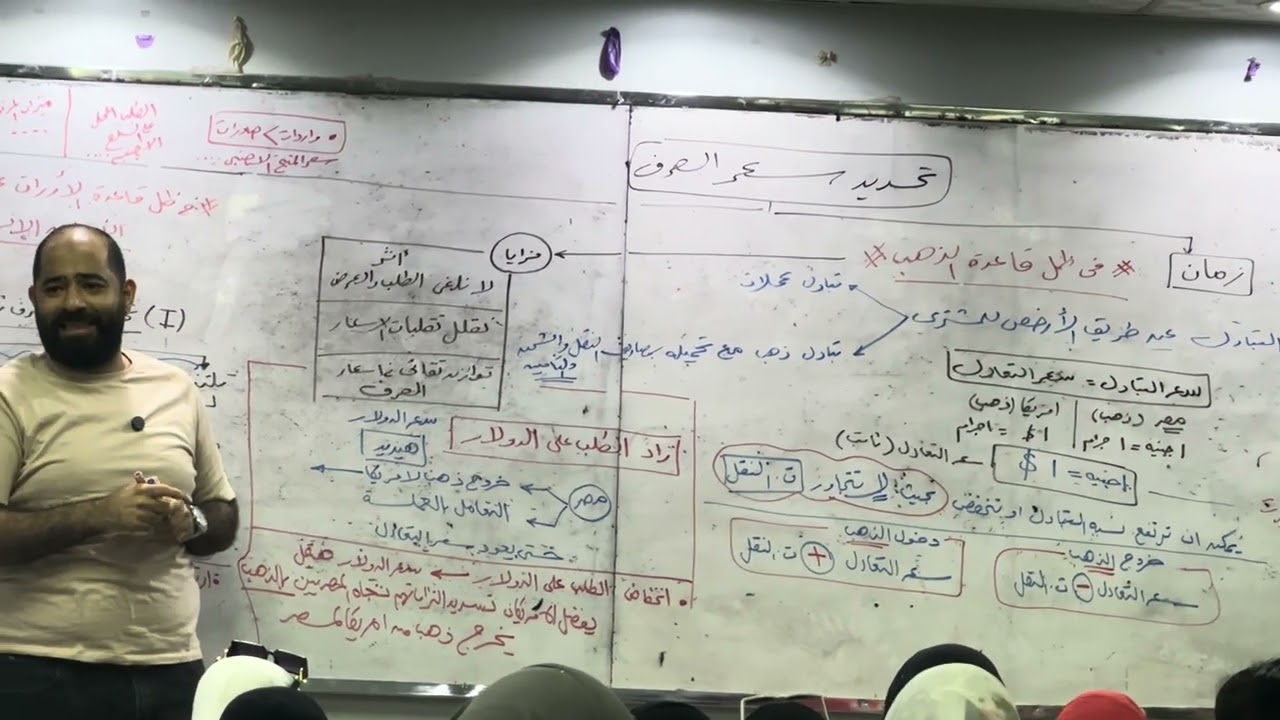 تحديد سعر الصرف
زمان
# فى ظل قاعدة الذهب #
التبادل عن طريق الأرخص للمشترى
تبادل عملات
تبادل ذهب مع تحمله مصاريف النقل والشحن
والتأمين
سعر التبادل = سعر التعادل
مصر (ذهب)
1 جنيه = 1 جرام
امريكا (ذهب)
1 $ = 1 جرام
1 جنيه = 1 $
سعر التعادل (ثابت)
يمكن ان ترتفع نسبة التبادل او تنخفض بحيث لا تتجاوز ت. النقل
خروج الذهب
سعر التعادل - ت النقل
دخول الذهب
سعر التعادل + ت النقل
مزايا
أثر
لا نلغى الطلب والعرض
تقلل تقلبات الاسعار
توازن تلقائى فى اسعار
الصرف
زاد الطلب على الدولار
سعر الدولار
هيزيد
مصر
خروج ذهب لامريكا
التعامل بالعملة
حتى يعود سعر التعادل
• انخفاض الطلب على الدولار ← سعر الدولار هيقل
يفضل الامريكان تسديد التزاماتهم تجاه المصريين بالذهب
يخرج ذهب من امريكا لمصر
• واردات > صادرات
سعر المنتج الاجنبى ....
الطلب المحلى
على السلع
الاجنبية ....
# فى ظل قاعدة الأوراق
(I)